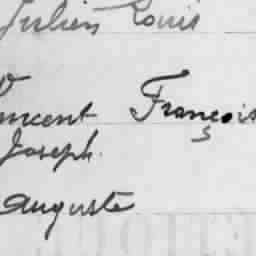 Julien Louis
Vincent François
Joseph.
Auguste